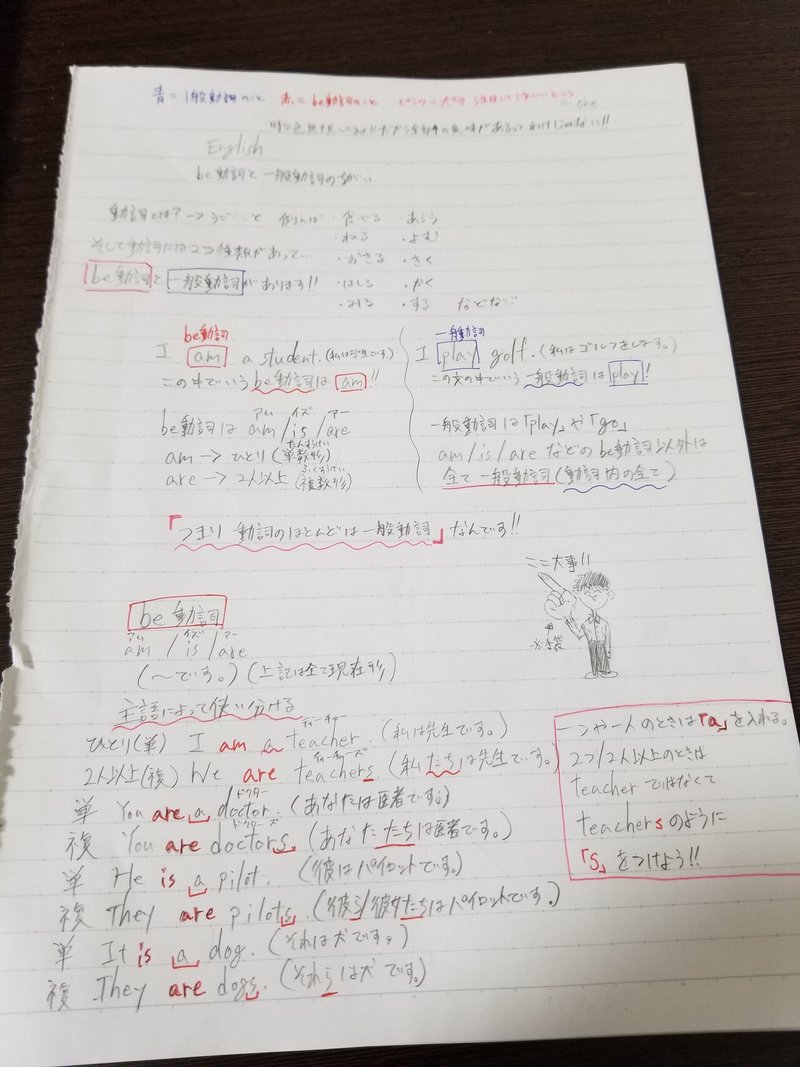 青=一般動詞のこと 赤=be動詞のこと ピンク=大切、注目してほしいところ
English
be動詞と一般動詞のちがい
動詞とは?→うごくこと 例えば ・食べる あらう
・ねる ・よむ
そして動詞には2つ種類があって…
・おきる ・きく
be動詞と一般動詞があります!!
・はしる ・かく
・みる ・する などなど
be動詞
I am a student. (私は学生です。)
この中でいうbe動詞はam!!
アム イズ アー
be動詞は am/is/are
たんすうけい
am→ひとり(単数形)
ふくすうけい
are→2人以上(複数形)
一般動詞
I play golf. (私はゴルフをします。)
この文の中でいう一般動詞はplay!
一般動詞は「play」や「go」
am/is/areなどのbe動詞以外は
全て一般動詞(動詞内の全て)
「つまり動詞のほとんどは一般動詞」なんです!!
ここ大事!!
※手袋
be動詞
アム イズ アー
am/is/are
(~です。)(上記は全て現在形)
主語によって使い分ける
ティーチャー
ひとり(単) I am a teacher. (私は先生です。)
ティーチャーズ
2人以上(複) We are teachers. (私たちは先生です。)
ドクター
単 You are a doctor. (あなたは医者です。)
ドクターズ
複 You are doctors. (あなたたちは医者です。)
単 He is a pilot. (彼はパイロットです。)
複 They are pilots. (彼ら/彼女たちはパイロットです。)
単 It is a dog. (それは犬です。)
複 They are dogs. (それらは犬です。)
一つや一人のときは「a」を入れる。
2つ/2人以上のときは
teacherではなくて
teachersのように
「S」をつけよう!!